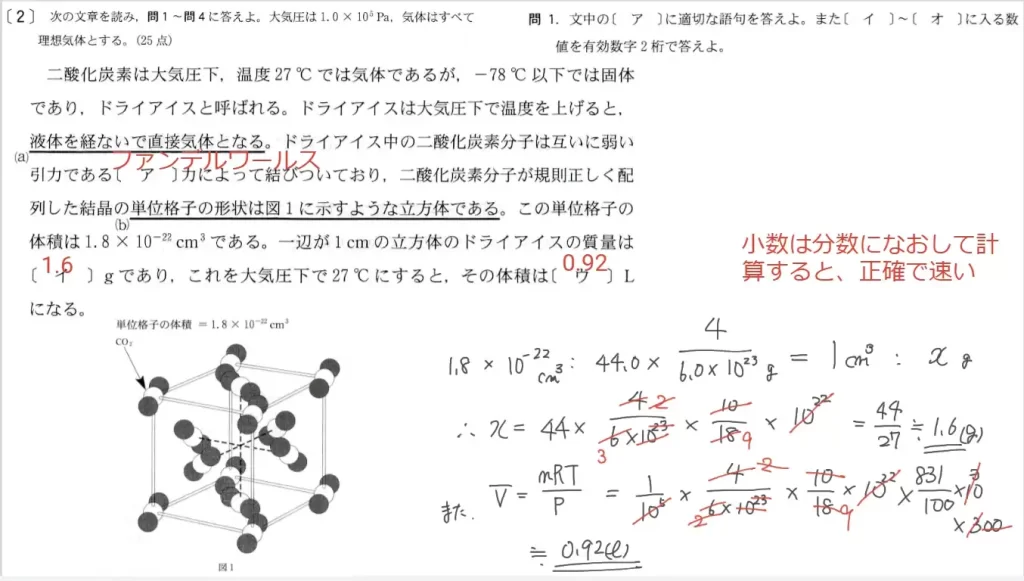 〔2〕 次の文章を読み，問1～問4に答えよ。大気圧は1.0×10⁵Pa，気体はすべて
理想気体とする。(25点)
二酸化炭素は大気圧下，温度27℃では気体であるが，－78℃以下では固体
であり，ドライアイスと呼ばれる。ドライアイスは大気圧下で温度を上げると，
液体を経ないで直接気体となる。ドライアイス中の二酸化炭素分子は互いに弱い
(a)
ファンデルワールス
引力である〔 ア 〕力によって結びついており，二酸化炭素分子が規則正しく配
列した結晶の単位格子の形状は図1に示すような立方体である。この単位格子の
(b)
体積は1.8×10⁻²²cm³である。一辺が1cmの立方体のドライアイスの質量は
1.6 0.92
〔 イ 〕gであり，これを大気圧下で27℃にすると，その体積は〔 ウ 〕L
になる。
単位格子の体積 ＝1.8×10⁻²²cm³
CO₂
図1
問 1．文中の〔 ア 〕に適切な語句を答えよ。また〔 イ 〕～〔 オ 〕に入る数
値を有効数字2桁で答えよ。
小数は分数になおして計
算すると、正確で速い
1.8 × 10⁻²² cm³ : 44.0 × 4/(6.0×10²³) g = 1 cm³ : x g
∴ x = 44 × 4/(6×10²³) × 10/18 × 10²² = 44/27 ≒ 1.6(g)
2 3 9
また. V = nRT/P = 1/10⁵ × 4/(6×10²³) × 10/18 × 10²² × 831/100 × 10³ × 300
2 2 9
≒ 0.92(ℓ)